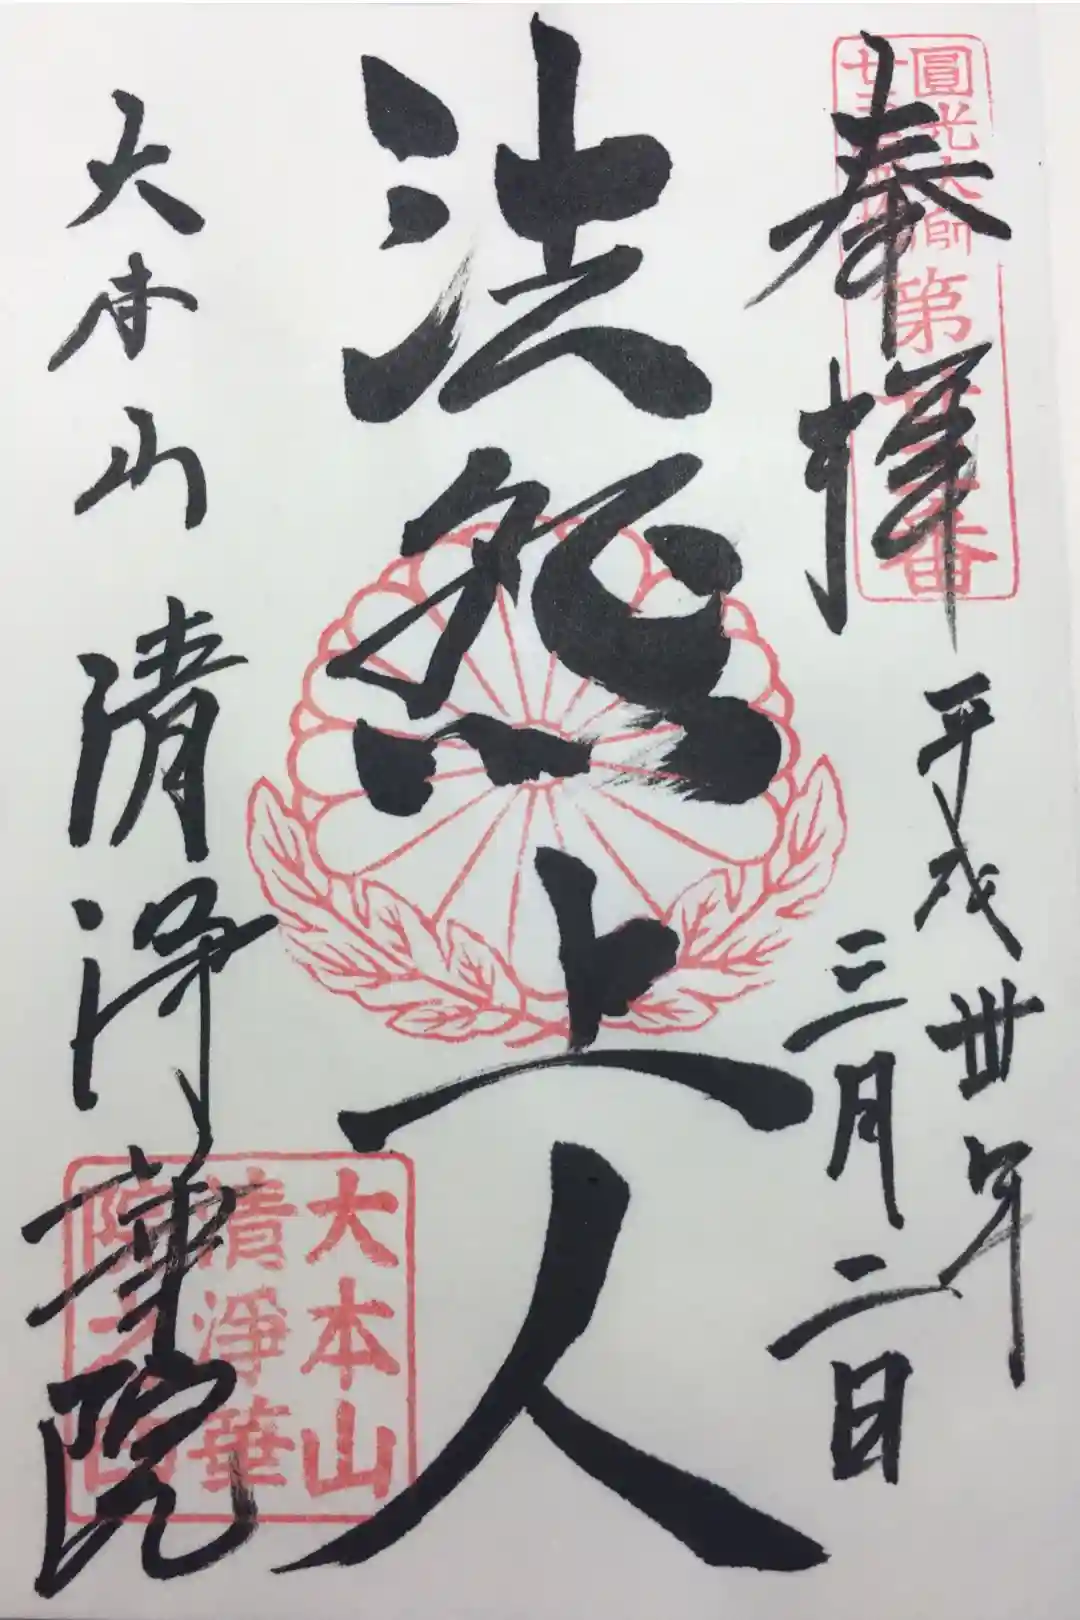 奉拝
平成卅年
三月二日
圓光大師
第廿三番
法然上人
大本山 清浄華院
大本山
清淨華
院之印